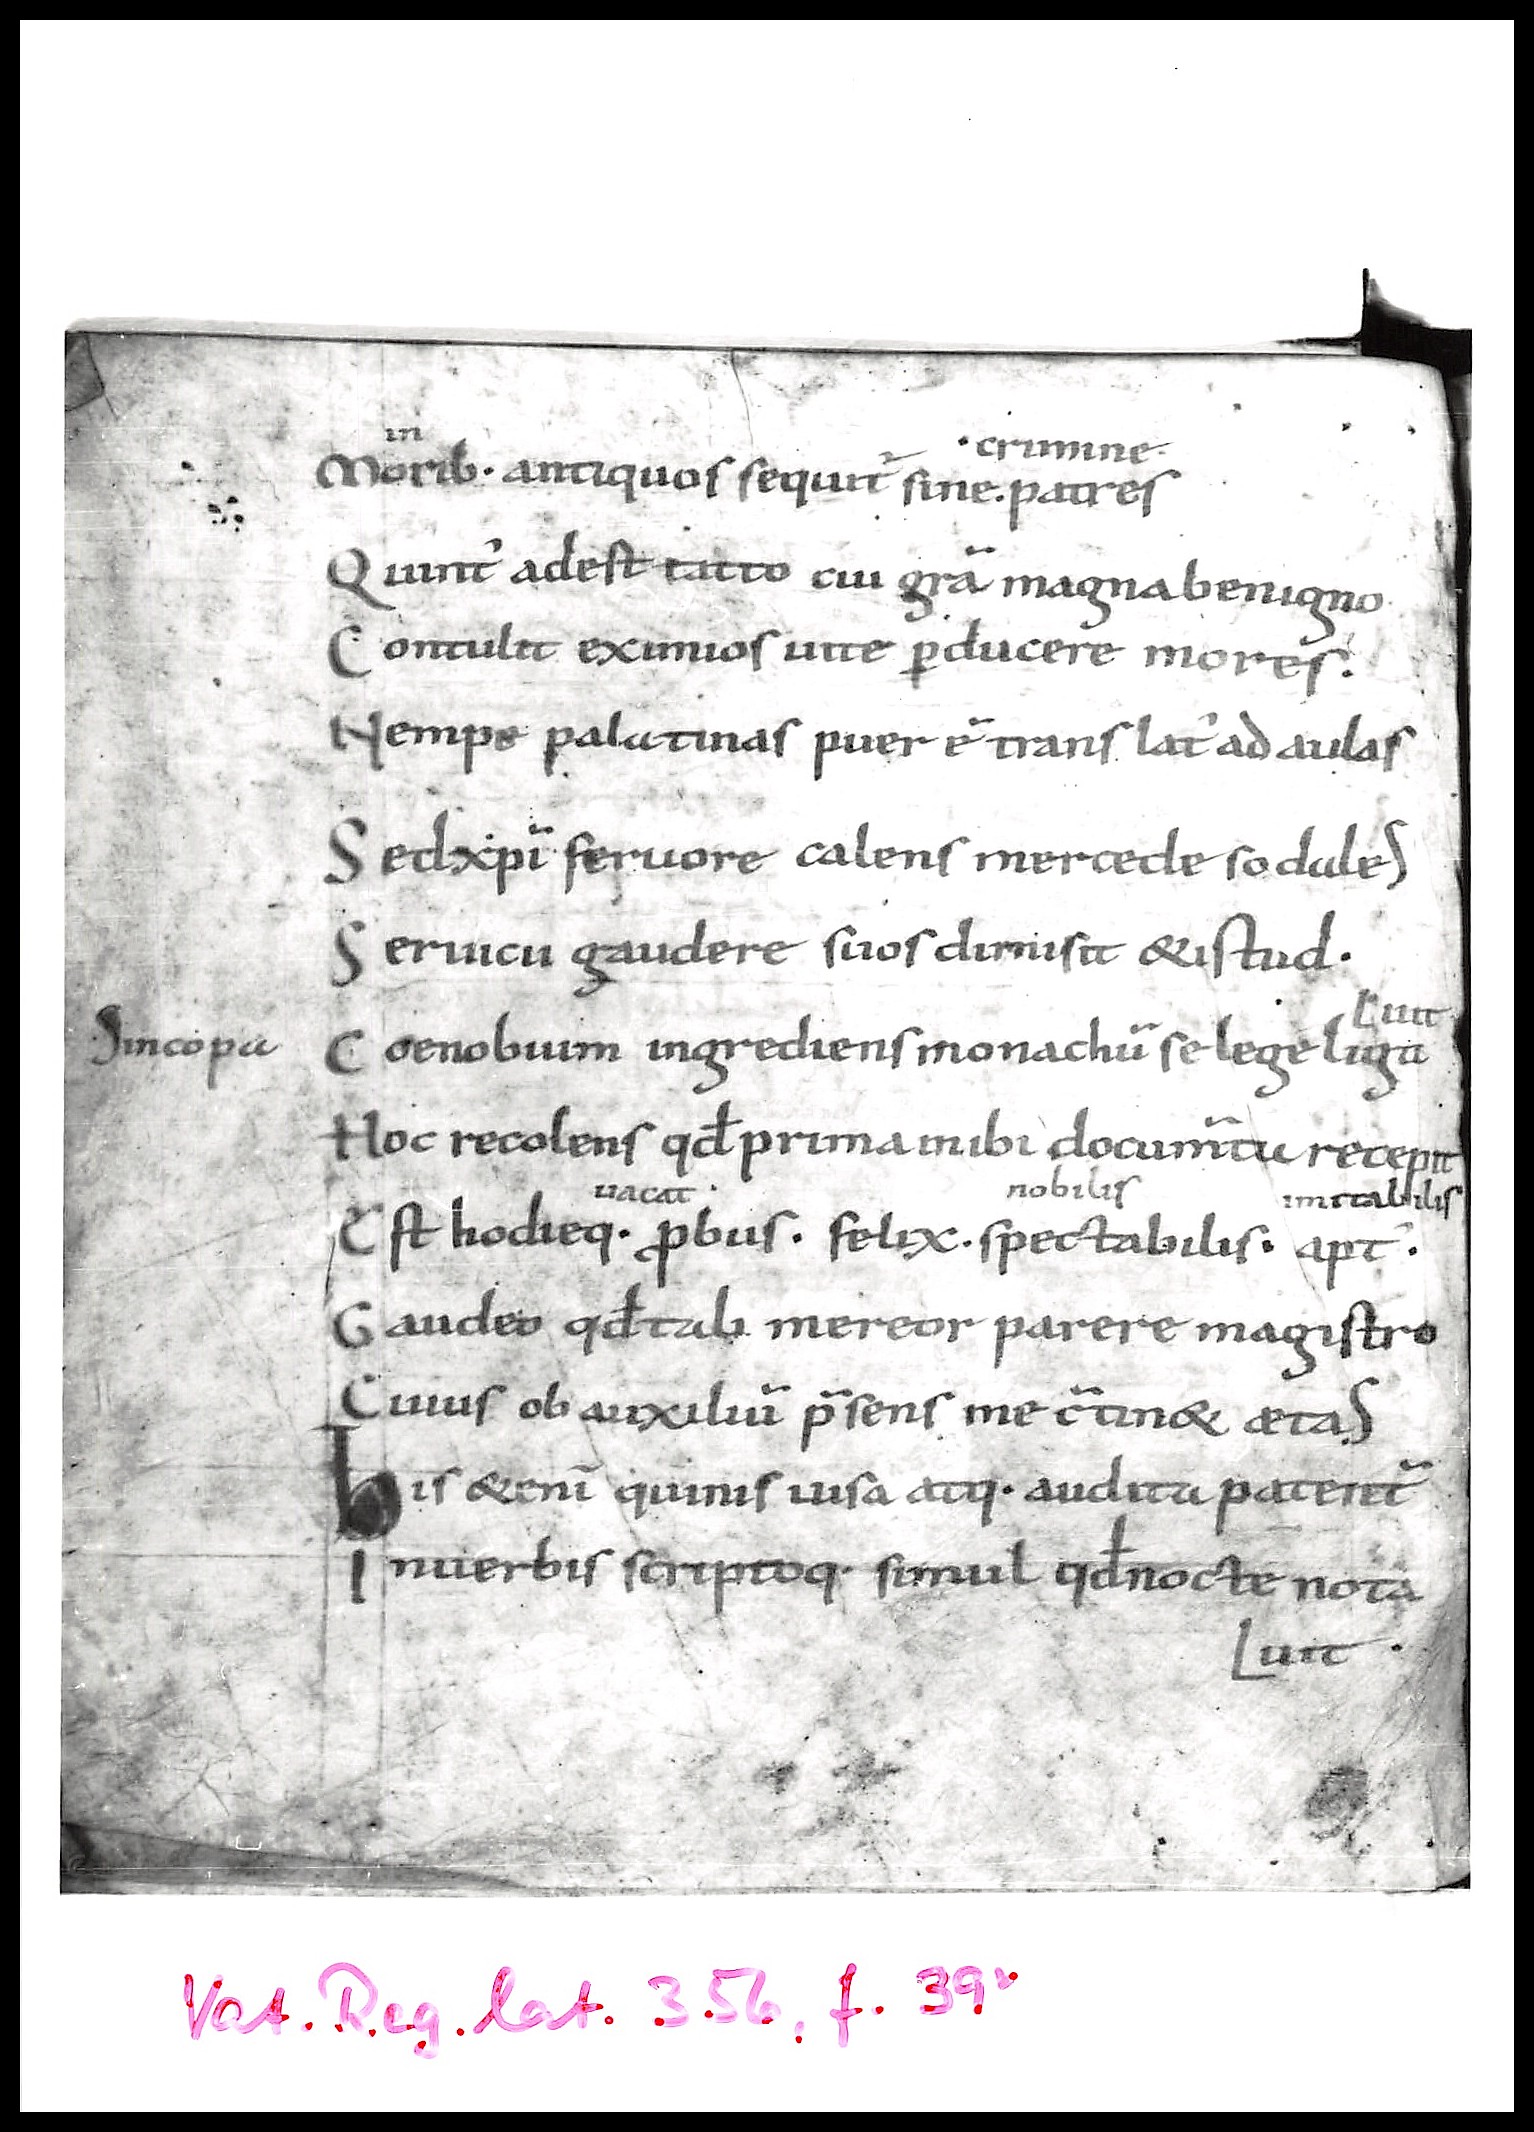 in
·crimine·
Morib· antiquos sequit᷑ sine. patres
Quint᾽ adest tatto cui grã magna benigno
Contulit eximios uite ꝑducere mores.
Nempe palatinas puer ẽ translat᾽ ad aulas
Sed xp̃i feruore calens mercede sodales
Seruicii gaudere suos dimisit & istud.
Luit
Sincopa Coenobium ingrediens monachũ se lege liga
Hoc recolens qđ prima mihi docum̃ta recepit
uacat· nobilis imitabilis
Est hodieq· ꝓbus. felix. spectabilis. apt᾽.
Gaudeo qđ tali mereor parere magistro
Cuius ob auxiliũ p̃sens me c̃tin& ætas
His &eni᷑ quinis uisa atq· audita patent᷑
In uerbis scriptoq· simul qđ nocte nota
Luit ·
Vat. Reg. lat. 356, f. 39v